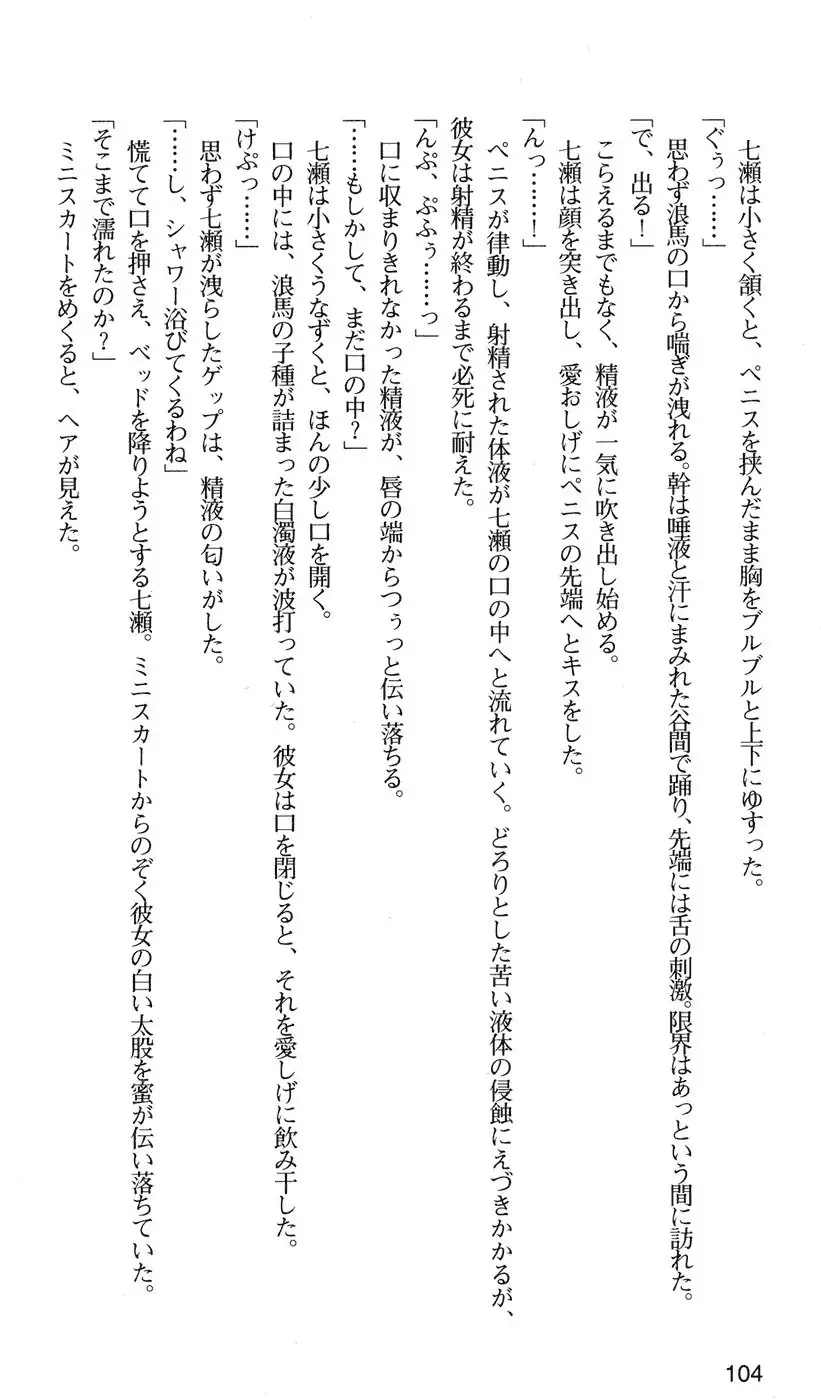 七瀬は小さく頷くと、ペニスを挟んだまま胸をブルブルと上下にゆすった。
「ぐぅっ……」
思わず浪馬の口から喘ぎが洩れる。幹は唾液と汗にまみれた谷間で踊り、先端には舌の刺激。限界はあっという間に訪れた。
「で、出る！」
こらえるまでもなく、精液が一気に吹き出し始める。
七瀬は顔を突き出し、愛おしげにペニスの先端へとキスをした。
「んっ……！」
ペニスが律動し、射精された体液が七瀬の口の中へと流れていく。どろりとした苦い液体の侵蝕にえづきかかるが、
彼女は射精が終わるまで必死に耐えた。
「んぷ、ぷふぅ……っ」
口に収まりきれなかった精液が、唇の端からつぅっと伝い落ちる。
「……もしかして、まだ口の中？」
七瀬は小さくうなずくと、ほんの少し口を開く。
口の中には、浪馬の子種が詰まった白濁液が波打っていた。彼女は口を閉じると、それを愛しげに飲み干した。
「けぷっ……」
思わず七瀬が洩らしたゲップは、精液の匂いがした。
「……し、シャワー浴びてくるわね」
慌てて口を押さえ、ベッドを降りようとする七瀬。ミニスカートからのぞく彼女の白い太股を蜜が伝い落ちていた。
「そこまで濡れたのか？」
ミニスカートをめくると、ヘアが見えた。
104